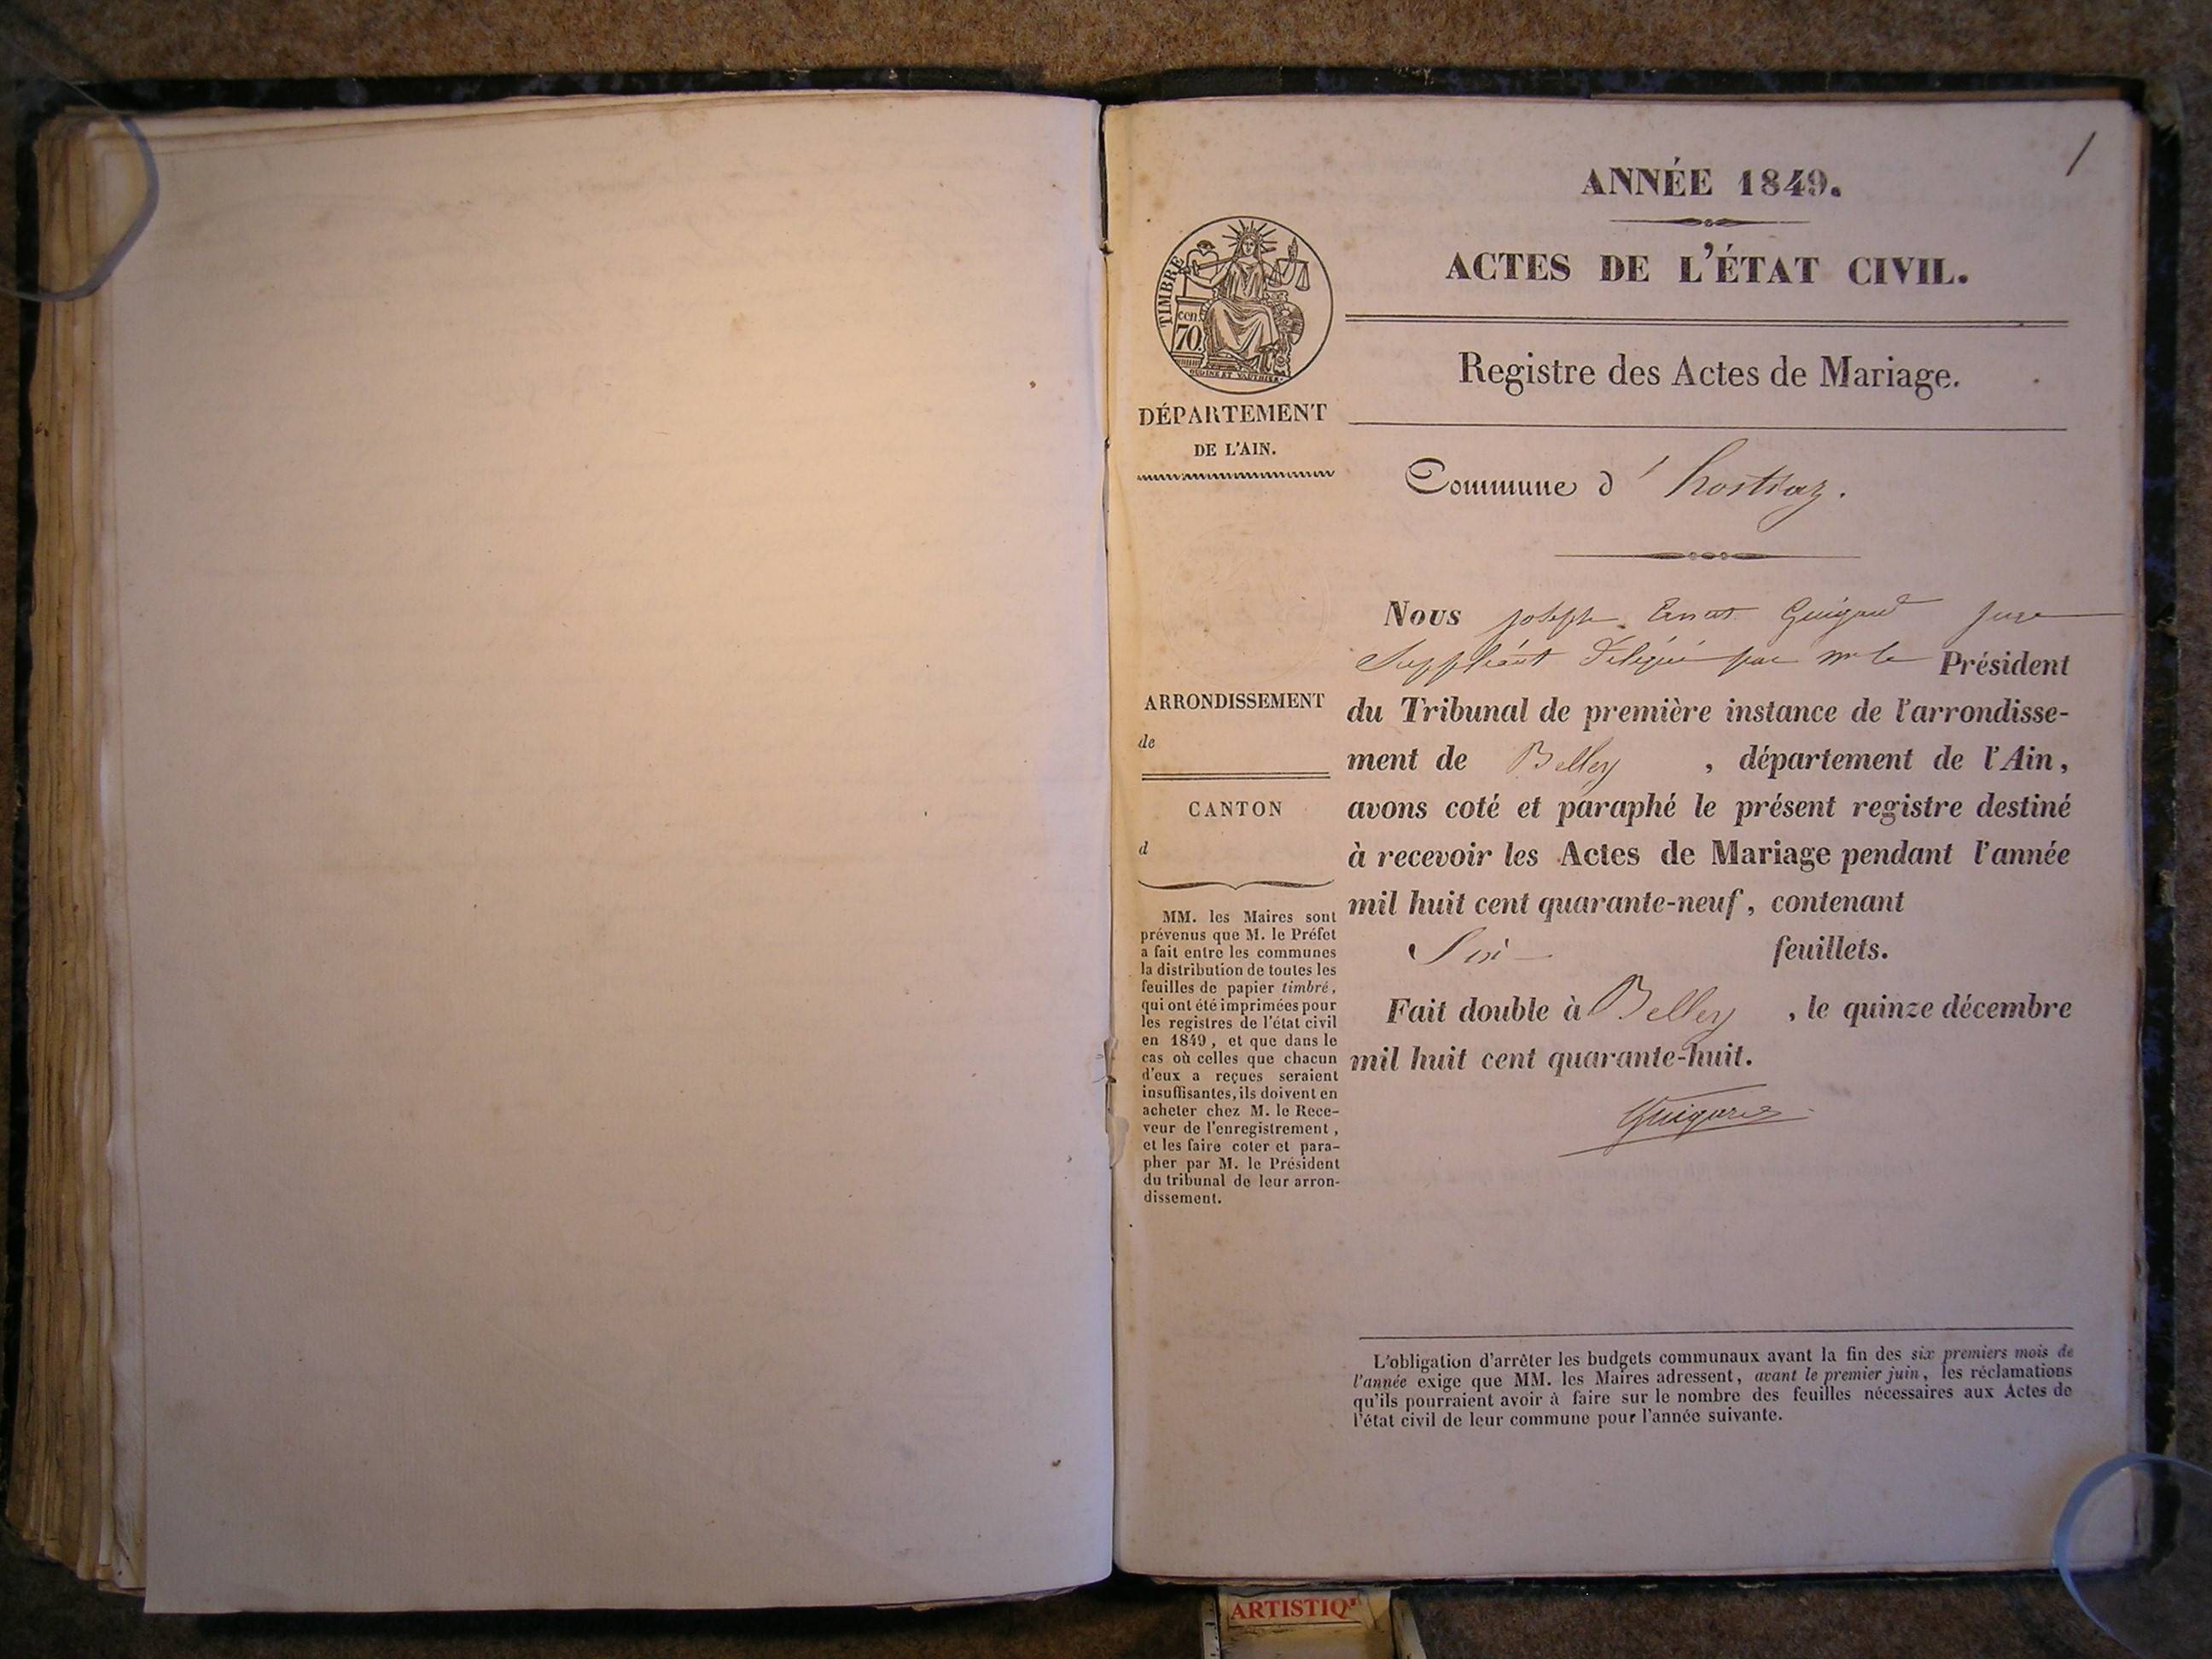 1
ANNÉE 1849.
ACTES DE L'ÉTAT CIVIL.
Registre des Actes de Mariage.
TIMBRE
cen.
70.
OUDINE ET VAUTHIER.
DÉPARTEMENT
DE L'AIN.
Commune d'hostiaz.
ARRONDISSEMENT
de
CANTON
d
MM. les Maires sont
prévenus que M. le Préfet
a fait entre les communes
la distribution de toutes les
feuilles de papier timbré,
qui ont été imprimées pour
les registres de l'état civil
en 1849, et que dans le
cas où celles que chacun
d'eux a reçues seraient
insuffisantes, ils doivent en
acheter chez M. le Rece-
veur de l'enregistrement,
et les faire coter et para-
pher par M. le Président
du tribunal de leur arron-
dissement.
Nous joseph Guigard juge
Suppléant Délégué par mr le Président
du Tribunal de première instance de l'arrondisse-
ment de Belley, département de l'Ain,
avons coté et paraphé le présent registre destiné
à recevoir les Actes de Mariage pendant l'année
mil huit cent quarante-neuf, contenant
Six feuillets.
Fait double à Belley, le quinze décembre
mil huit cent quarante-huit.
L'obligation d'arrêter les budgets communaux avant la fin des six premiers mois de
l'année exige que MM. les Maires adressent, avant le premier juin, les réclamations
qu'ils pourraient avoir à faire sur le nombre des feuilles nécessaires aux Actes de
l'état civil de leur commune pour l'année suivante.
ARTISTIQ